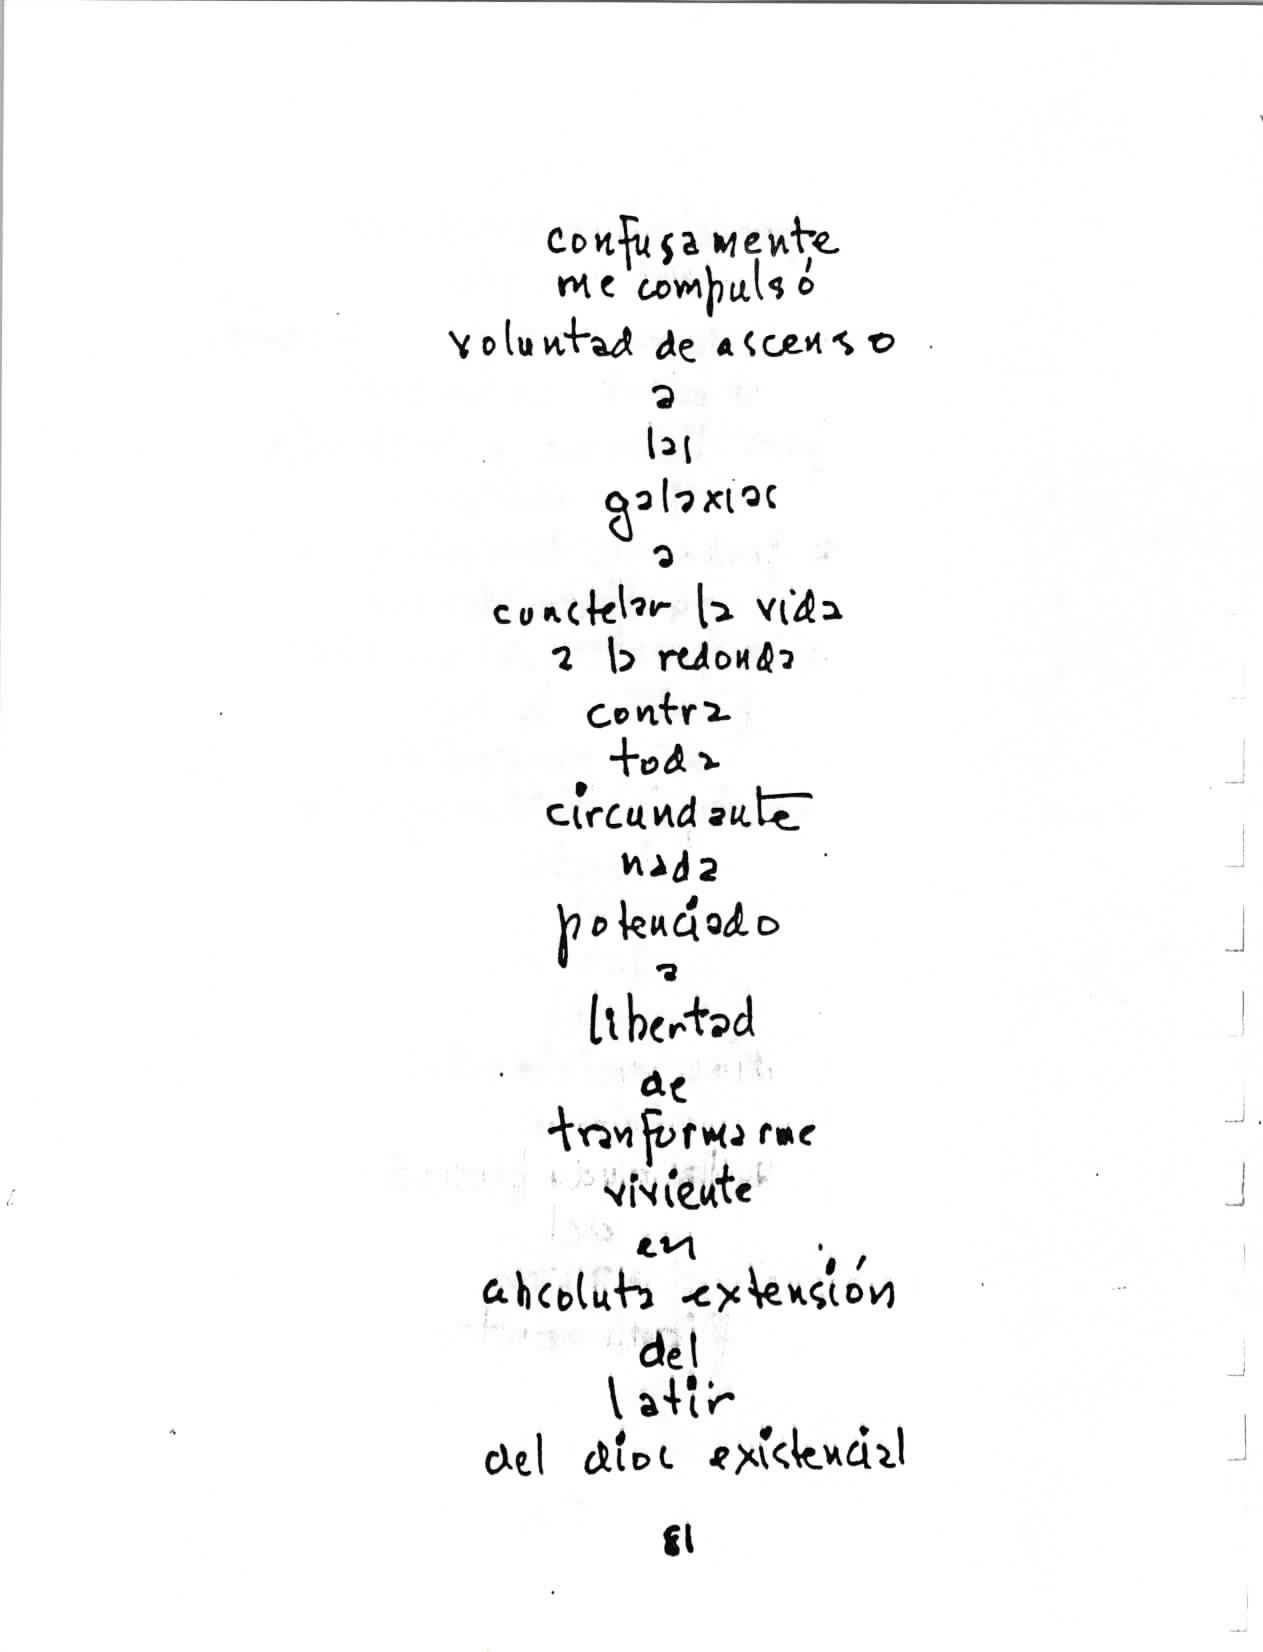 confusamente
me compulsó
voluntad de ascenso
a
las
galaxias
a
constelar la vida
a la redonda
contra
toda
circundante
nada
potenciado
a
libertad
de
tranformarme
viviente
en
absoluta extensión
del
latir
del dios existencial
81